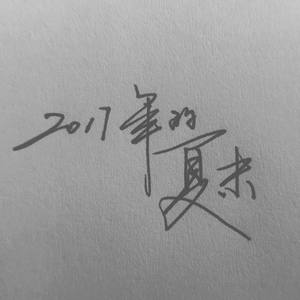 2017年的夏末